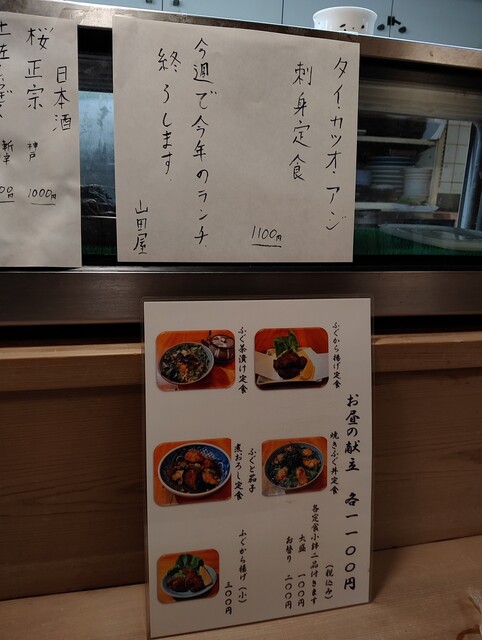 タイ・カツオ・アジ
刺身定食
1100円
今週で今年のランチ
終ろします。
山田屋
日本酒
桜正宗 神戸 1000円
お昼の献立 各一一〇〇円
(税込み)
ふぐから揚げ定食
焼きふぐ丼定食
ふぐ茶漬け定食
ふぐと茄子
煮おろし定食
各定食小鉢二品付きます
大盛 一〇〇円
お替り 二〇〇円
ふぐから揚げ(小)
三〇〇円